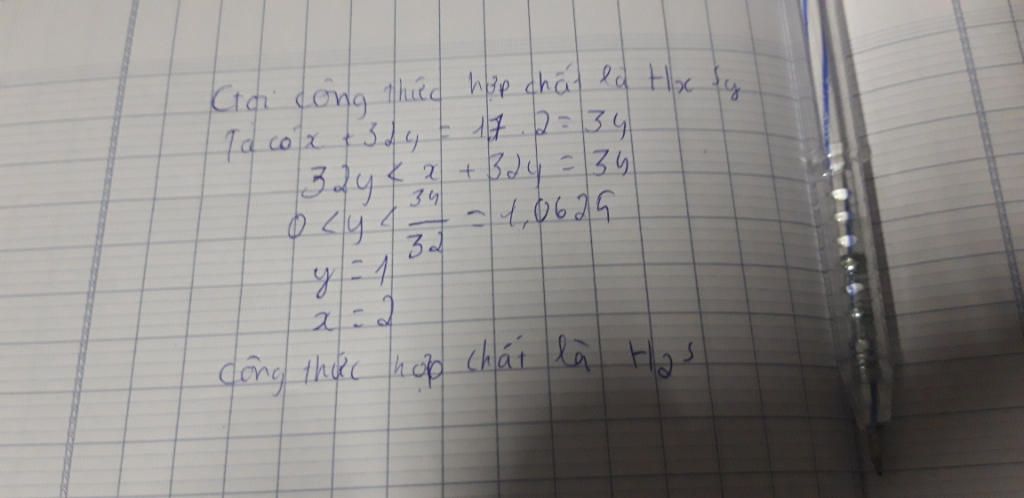 Gọi công thức hợp chất là HxSy
Ta có x + 32y = 17.2 = 34
32y < x + 32y = 34
0 < y < 34/32 = 1,0625
y = 1
x = 2
công thức hợp chất là H2S